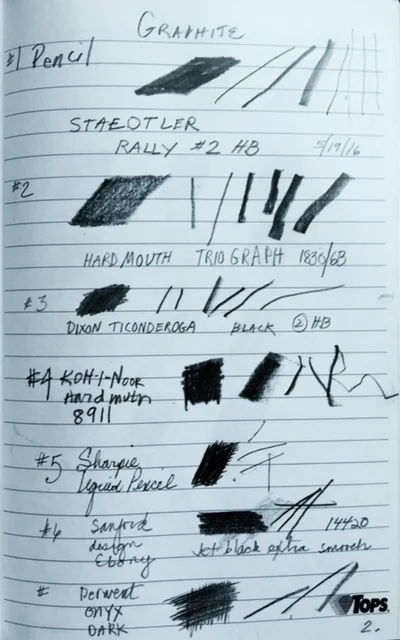 GRAPHITE
#1 Pencil
STAEDTLER
RALLY #2 HB 5/19/16
#2
HARDMOUTH TRIOGRAPH 1830/6B
#3
DIXON TICONDEROGA BLACK 2 HB
#4 KOH-I-NOOR
Hardmuth
8911
#5 Sharpie
liquid Pencil
#6 Sanford 14420
design Jet black extra smooth
Ebony
# Derwent
ONYX
DARK
TOPS
2.